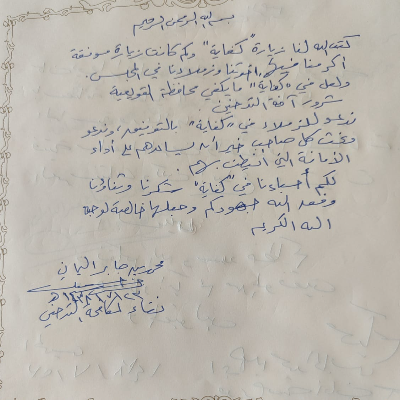 بسم الله الرحمن الرحيم
كتب الله لنا زيارة "كفاية" وكم كانت زيارة موفقة
أكرمنا فيها أخوتنا وزملاؤنا في المجلس.
ولعل في "كفاية" ما يكفي محافظة القويعية
شرور آفة التدخين
ندعو للزملاء في "كفاية" بالتوفيق، وندعو
كل صاحب خير أنه يساندهم على أداء
الأمانة التي أنيطت بهم.
لكم أحباءنا في "كفاية" شكرنا وثناؤنا
ونفع الله بجهودكم وجعلها خالصة لوجه
الله الكريم
محمد جابر اليماني
نقاء لمكافحة التدخين